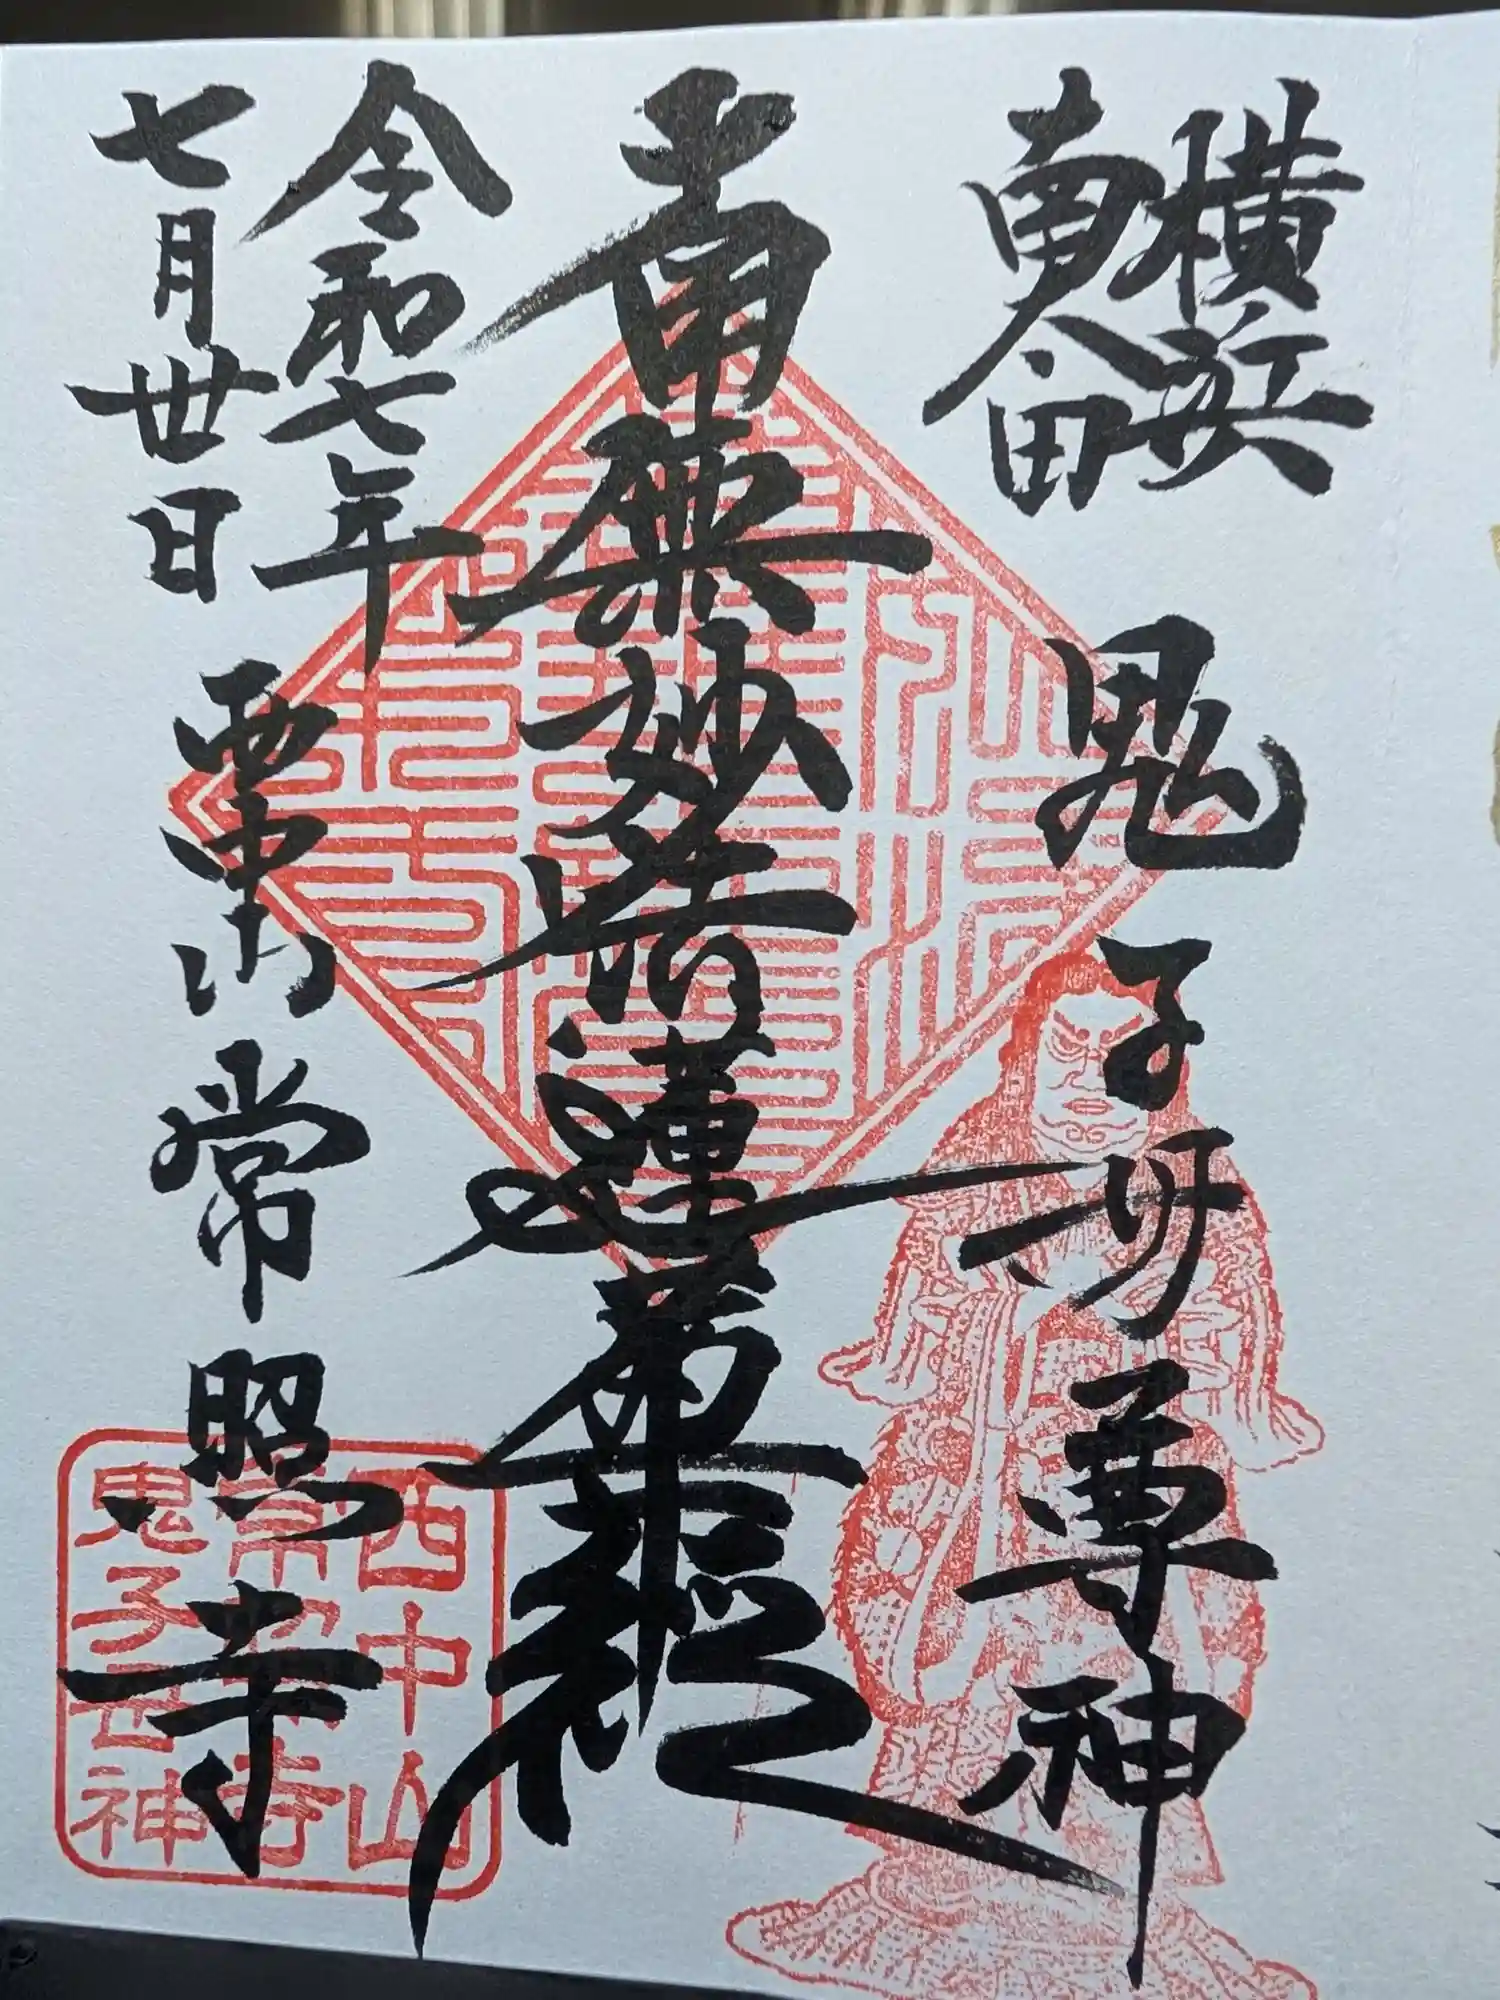 横浜
南太田
鬼子母尊神
南無妙法蓮華経
令和七年
七月廿日
常照寺
西中山
常照寺
鬼子母神